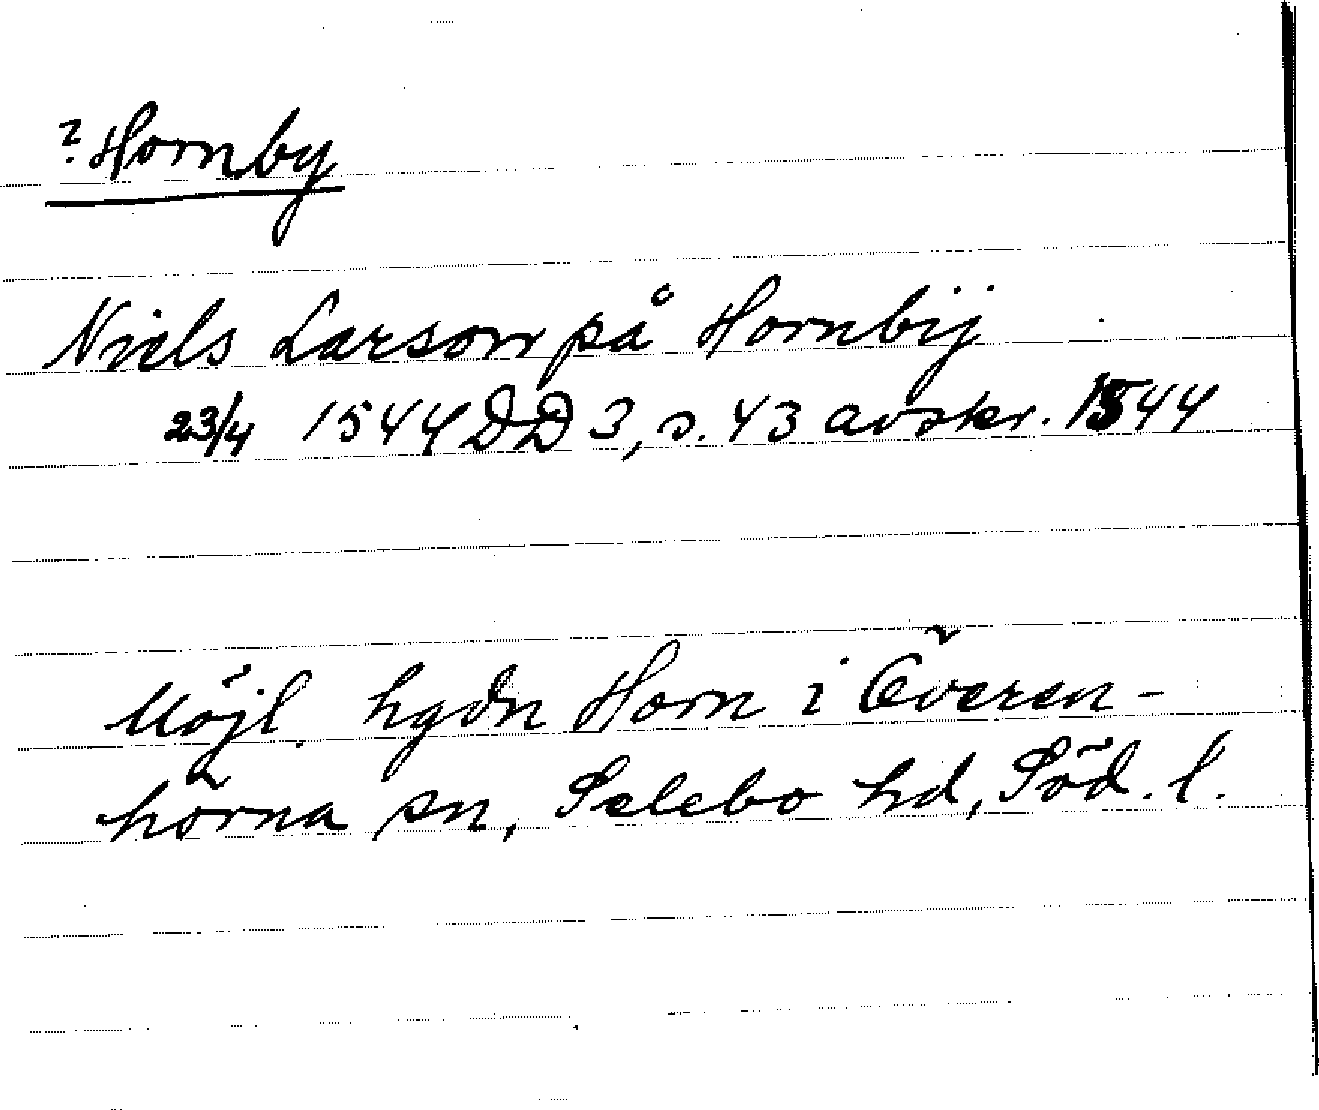 ? Hornby
Niels Larson på Hornbÿ
23/4 1544 DD 3, s. 43 avskr. 1544
Möjl. hgdn Horn i Överen-
hörna sn, Selebo hd, Söd. l.